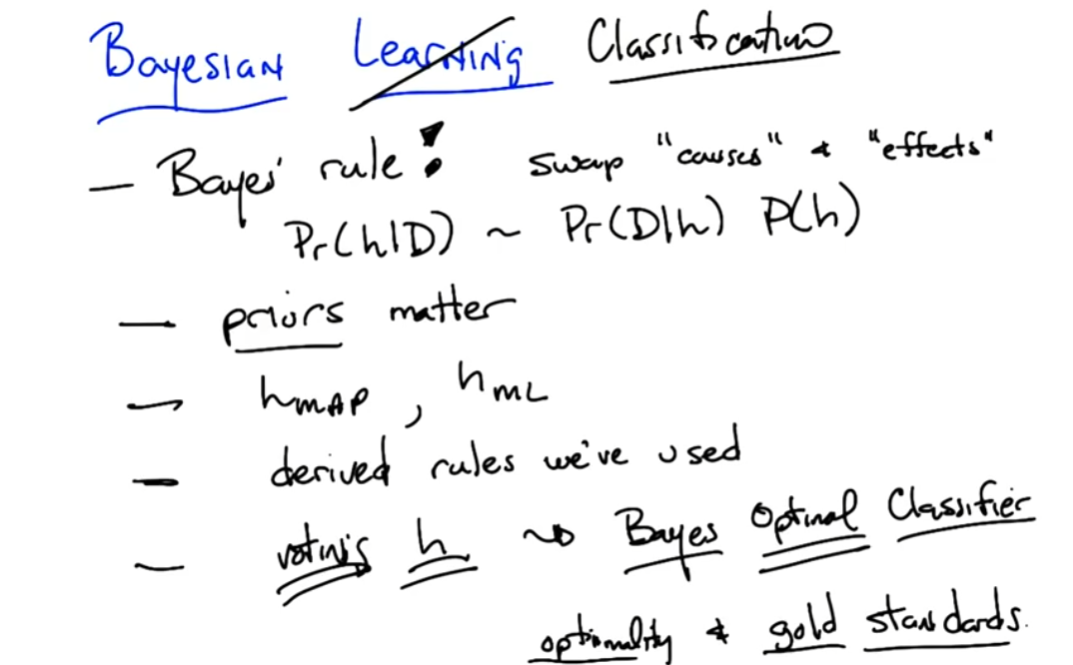 Bayesian Learning Classification
— Bayes' rule! swap "causes" & "effects"
Pr(h|D) ~ Pr(D|h) P(h)
— priors matter
— hMAP, hML
— derived rules we've used
— voting h → Bayes Optimal Classifier
optimality & gold standards.